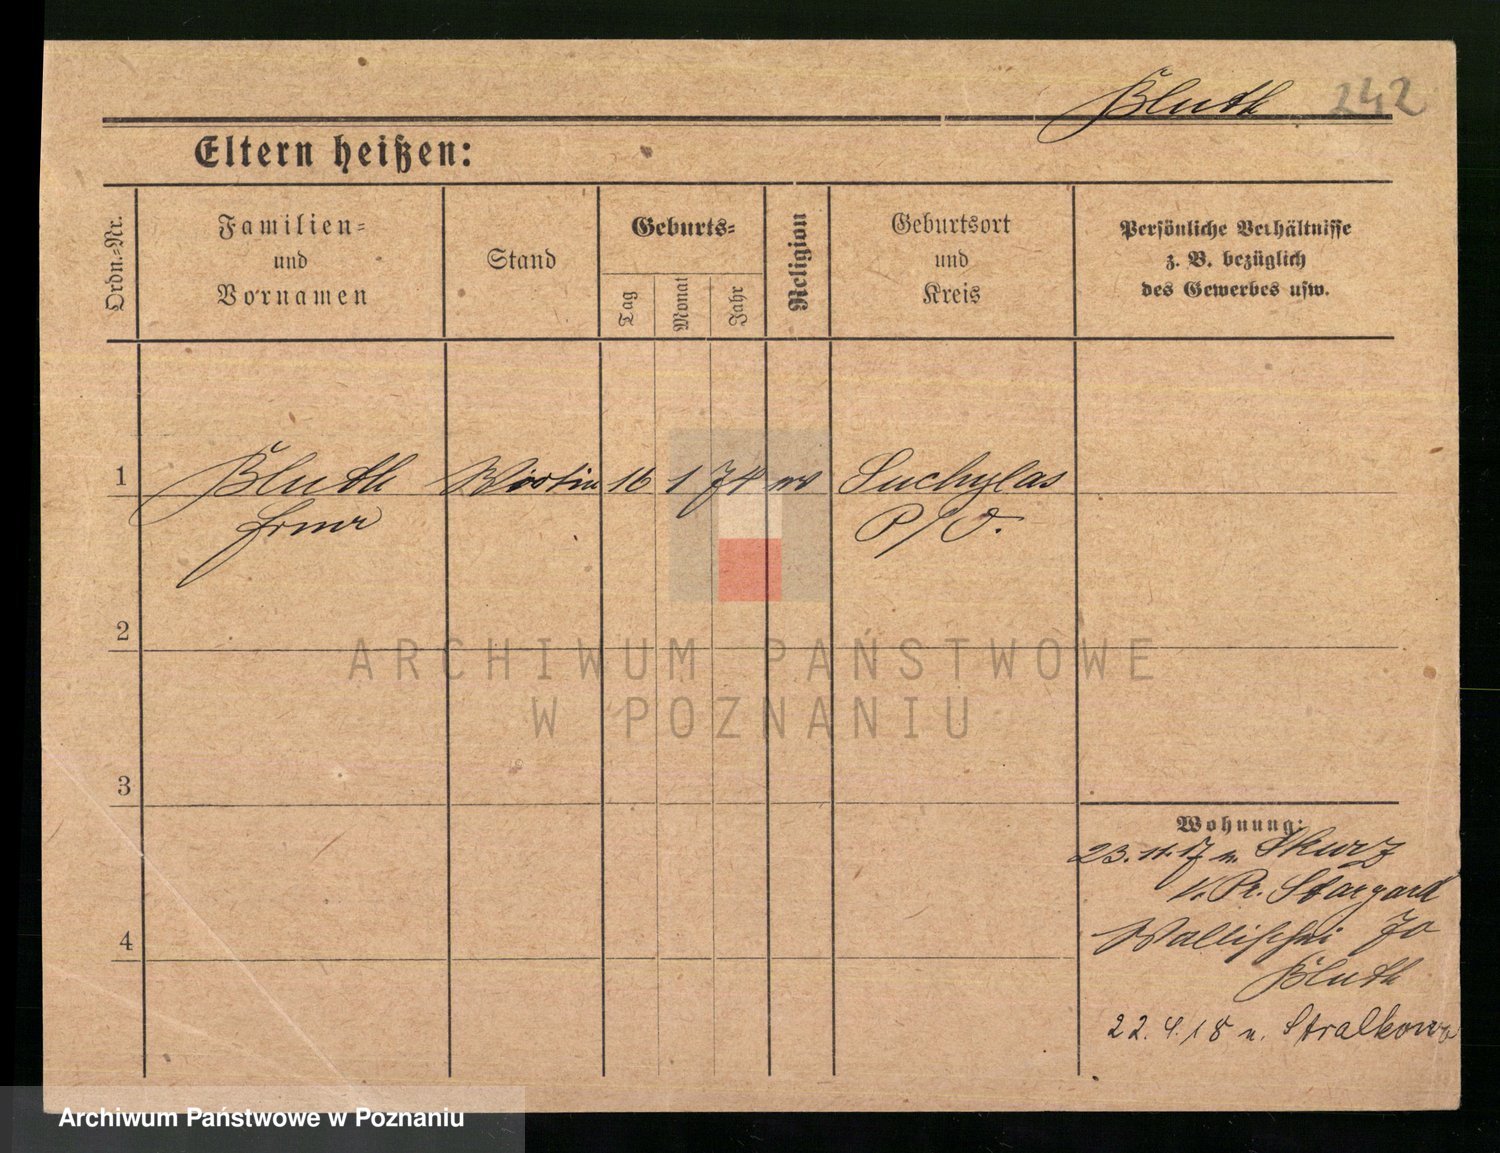 Bluth 242
Eltern heißen:
Ordn.-Nr.
Familien-
und
Vornamen
Stand
Geburts-
Tag
Monat
Jahr
Religion
Geburtsort
und
Kreis
Persönliche Verhältnisse
z. B. bezüglich
des Gewerbes usw.
1 Bluth Wirtin 16 1 74 Suchylas
P/O.
2
3
4
Wohnung:
23.11.17 n. Skurz
Pr. Stargard
Wallischei 70
Bluth
22.4.18 n. Stralkowo
ARCHIWUM PAŃSTWOWE
W POZNANIU
Archiwum Państwowe w Poznaniu